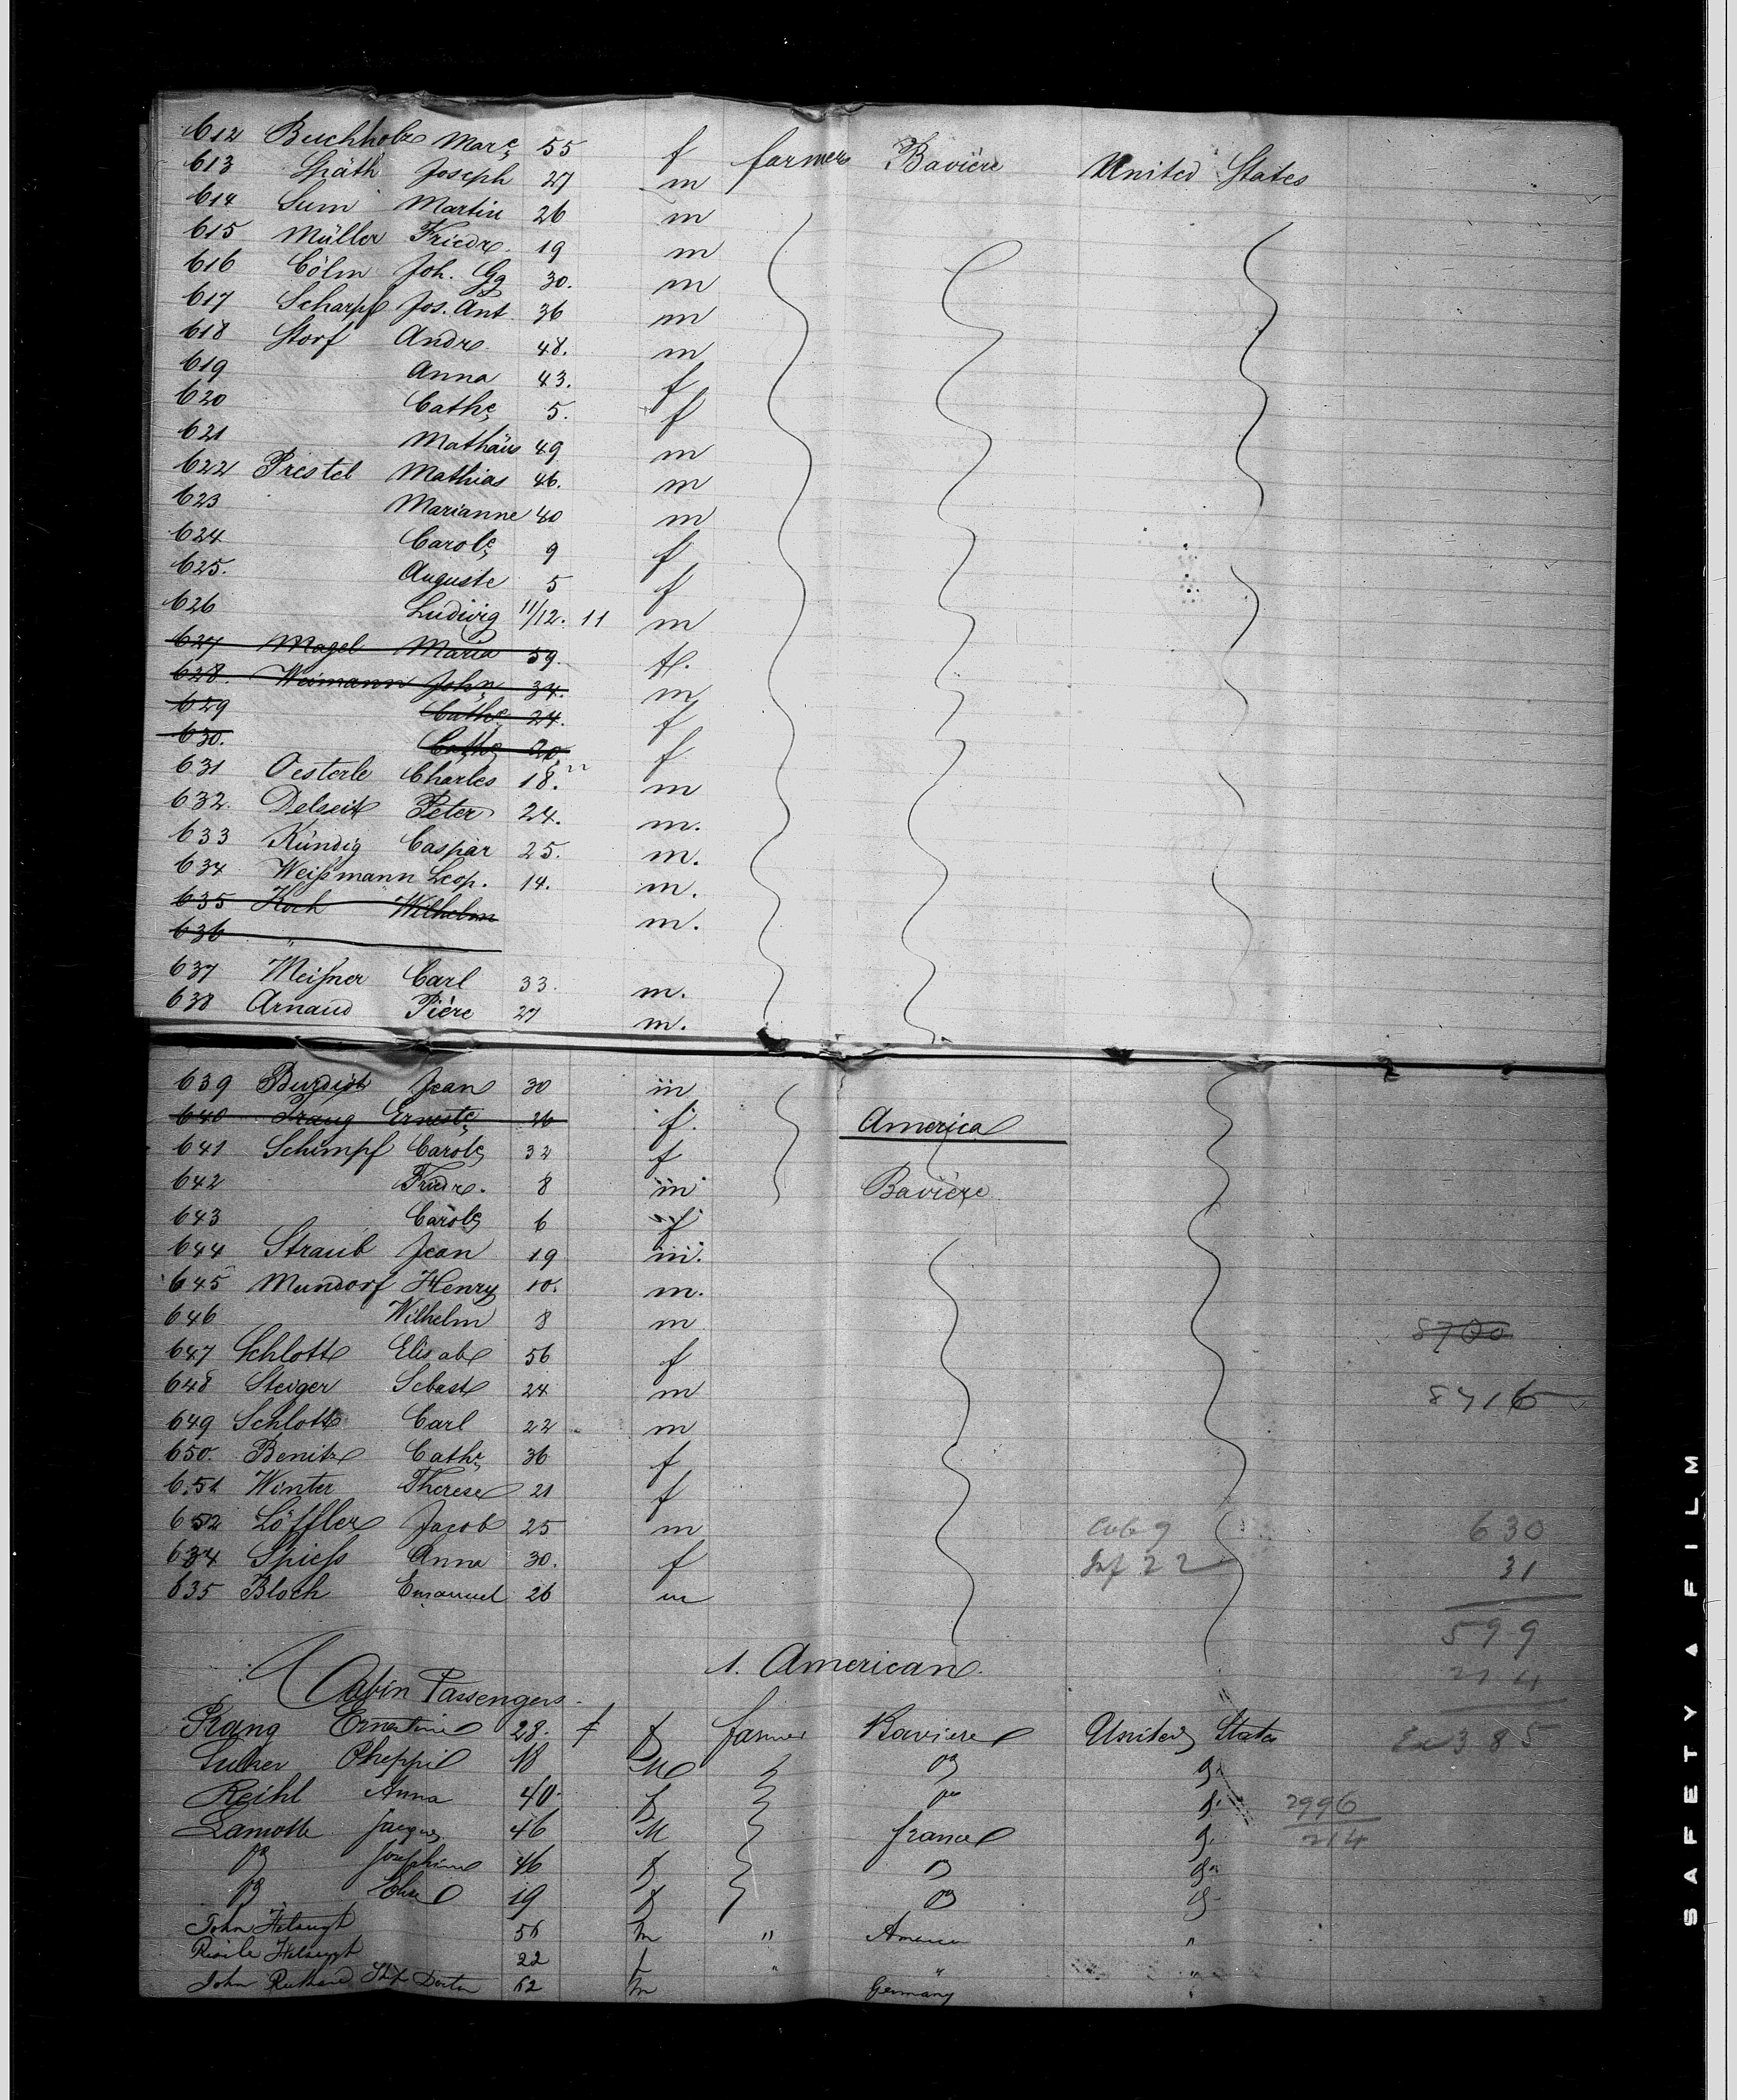 612 Buchholz Marc 55 f farmer Bavière United States
613 Späth Joseph 27 m
614 Sum Martin 26 m
615 Müller Friedr. 19 m
616 Cölm Joh. Gg 30. m
617 Scharpf Jos. Ant 36 m
618 Storf Andr. 48. m
619 Anna 43. f
620 Cathe 5. f
621 Mathäus 49 m
622 Prestel Mathias 46. m
623 Marianne 40 m
624 Carole 9 f
625. Auguste 5 f
626 Ludwig 11/12. 11 m
627 Magel Maria 59. f.
628. Weimann John 34. m
629 Cathe 24. f
630. Cathe f
631 Oesterle Charles 18. m
632. Delseit Peter 24. m.
633 Kündig Caspar 25. m.
634 Weißmann Leop. 14. m.
635 Koch Wilhelm m.
636 "
637 Meißner Carl 33. m.
638 Arnaud Pière 27 m.
639 Jean 30 m
640 Prang Erneste 26 f. America
641 Schimpf Carole 32 f
642 Friedr. 8 m Bavière
643 Carole 6 f
644 Straub Jean 19 m.
645 Mundorf Henry 10. m.
646 Wilhelm 8 m 8700
647 Schlott Elisab 56 f
648 Steiger Sebast 24 m 8716
649 Schlott Carl 22 m
650. Benitz Cathe 36 f
651 Winter Therese 21 f
652 Löffler Jacob 25 m 630
634 Spiess Anna 30. f Inf 22 31
635 Bloch Emanuel 26 m
599
1. American
214
Cabin Passengers
Prang Ernestine 28. f f farmer Baviere United States 385
18 M
Reihl Anna 40 f 2996
Lamotte Jacques 46 M france 214
Josephine 46 f
19 f
John 56 m " America "
22 f " " "
John 52 m Germany "